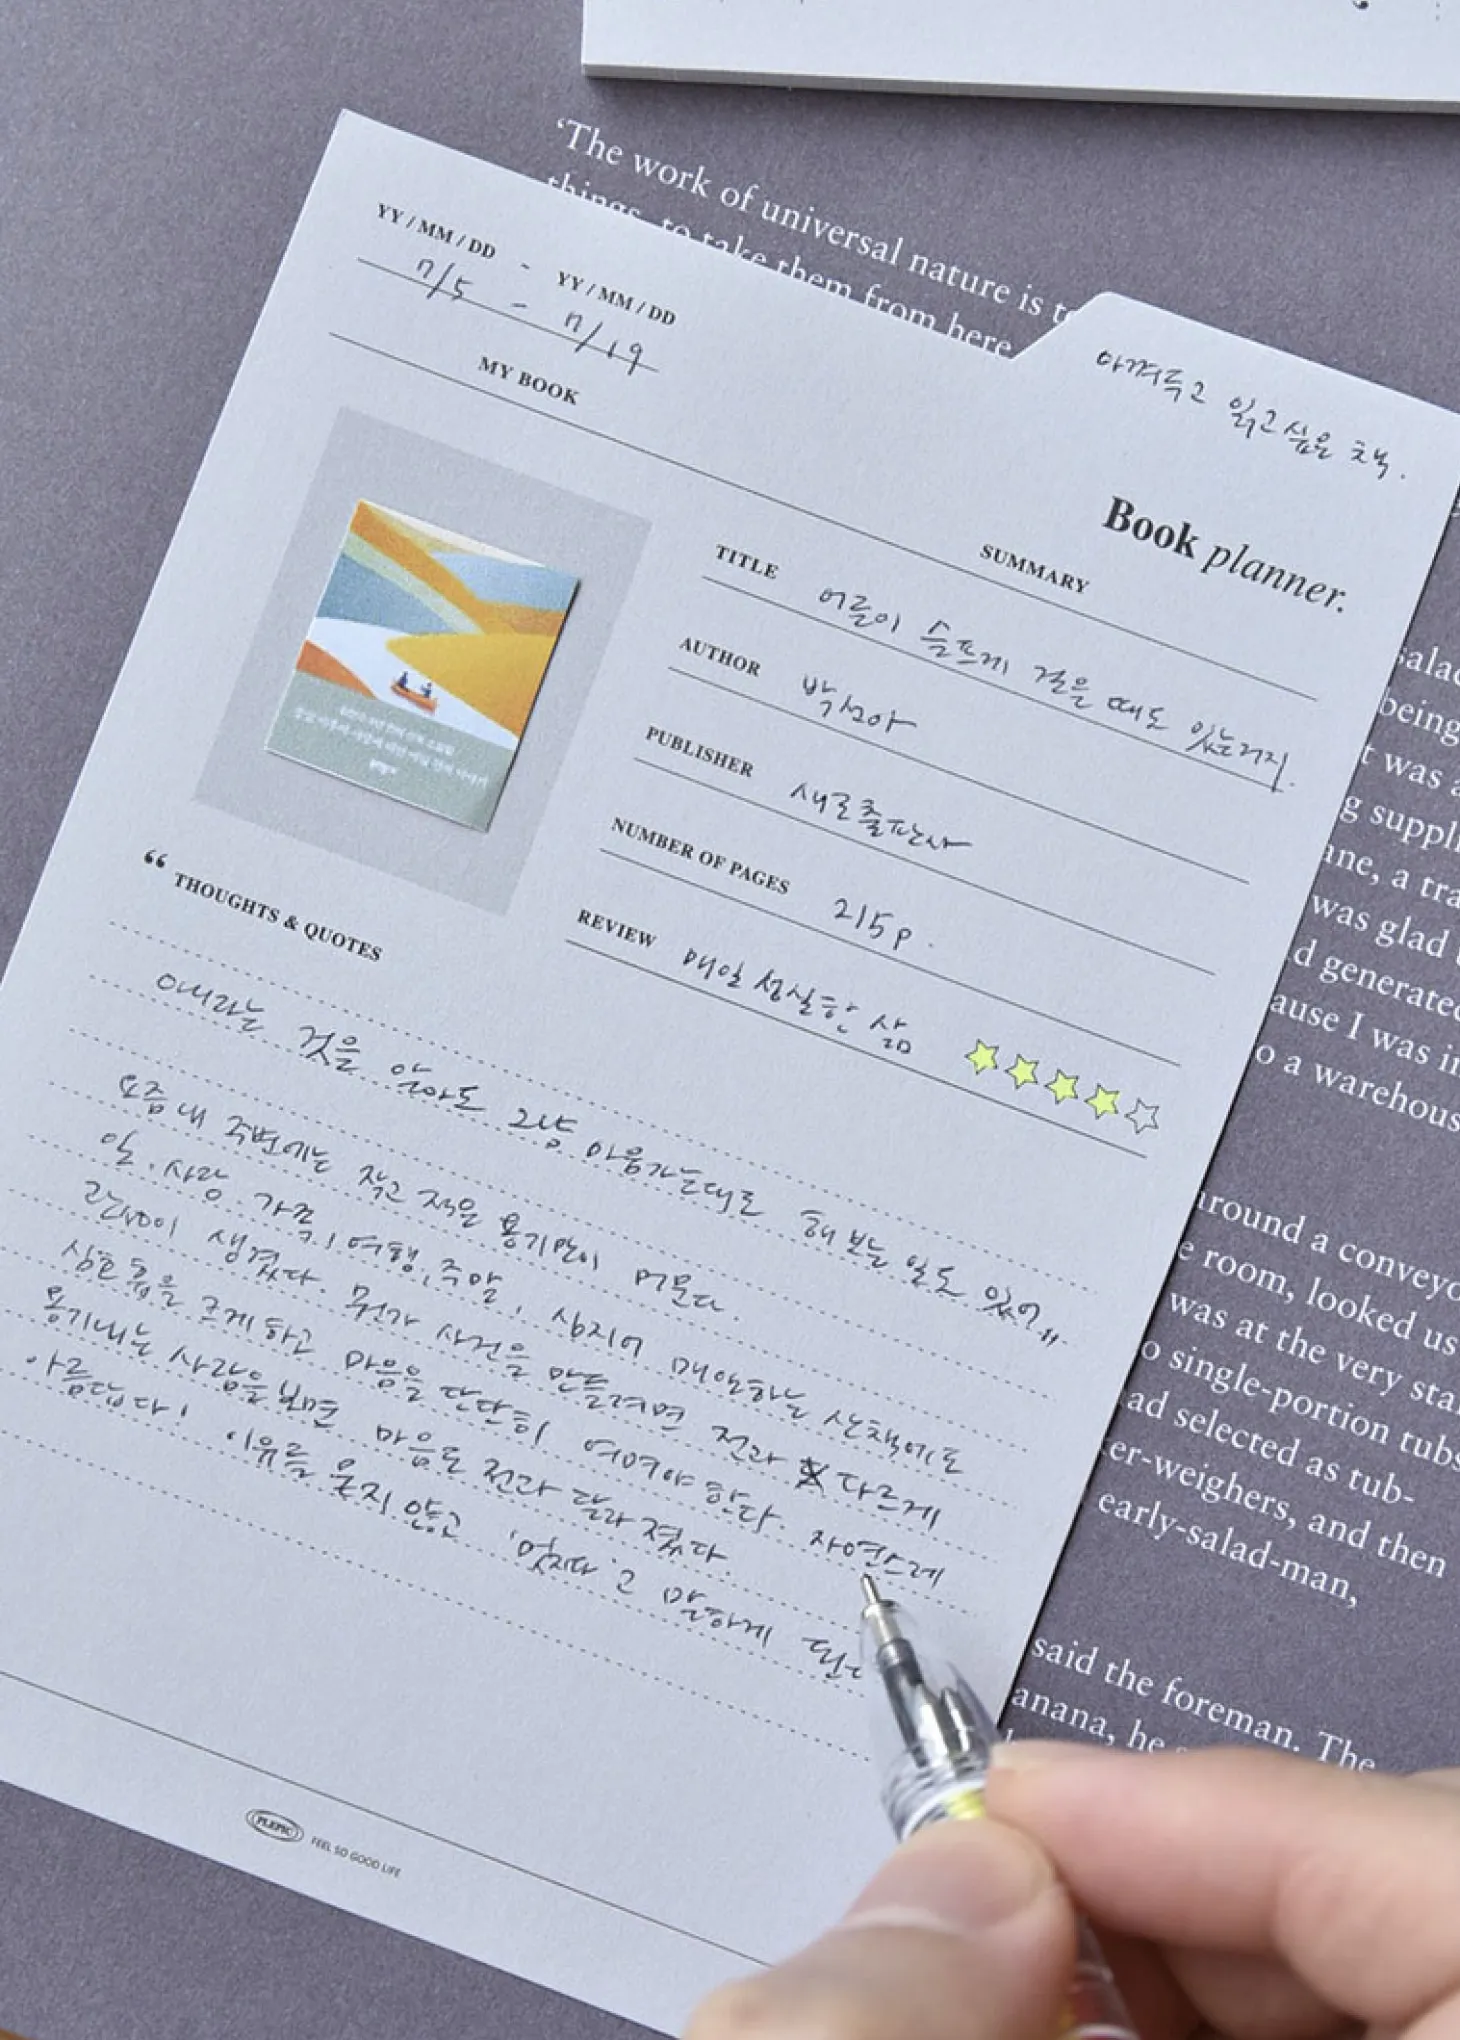 ‘The work of universal nature is to
things, to take them from here
YY / MM / DD - YY / MM / DD
7/5 - 7/19
아껴두고 읽고싶은 책.
Book planner.
MY BOOK
SUMMARY
TITLE 어른이 슬프게 걸을 때도 있는거지.
AUTHOR 박선아
PUBLISHER 새로출판사
NUMBER OF PAGES 215p.
REVIEW 매일 성실한 삶
“ THOUGHTS & QUOTES
아니라는 것을 알아도 그냥 마음가는대로 해 보는 일도 있어”
요즘 내 주변에는 작고 적은 용기만이 머문다.
일, 사랑, 가족, 여행, 주말, 심지어 매일하는 산책에도
관성이 생겼다. 뭔가 사건을 만들려면 전과 다르게
심호흡을 크게 하고 마음을 단단히 여며야 한다. 자연스레
용기내는 사람을 보면 마음도 전과 달라졌다.
아름답다! 이유를 묻지 않고 '멋지다'고 말하게 된
PLEPIC FEEL SO GOOD LIFE
salad
being
t was a
g suppli
ane, a tra
was glad
d generated
ause I was in
o a warehous
around a conveyo
e room, looked us
was at the very sta
o single-portion tubs
ad selected as tub-
er-weighers, and then
early-salad-man,
said the foreman. The
anana, he